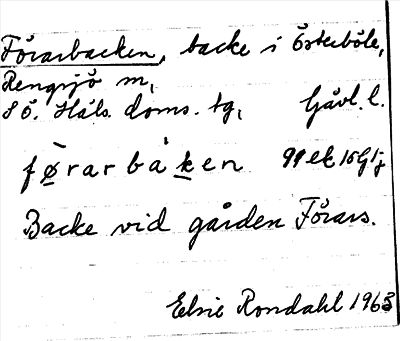 Förarbacken, backe i Österböle,
Rengsjö sn,
S Ö. Häls. doms. tg, Gävl. l.
fø̀rarbáken 99 ek 15G1j
Backe vid gården Förars.
Elsie Rondahl 1963